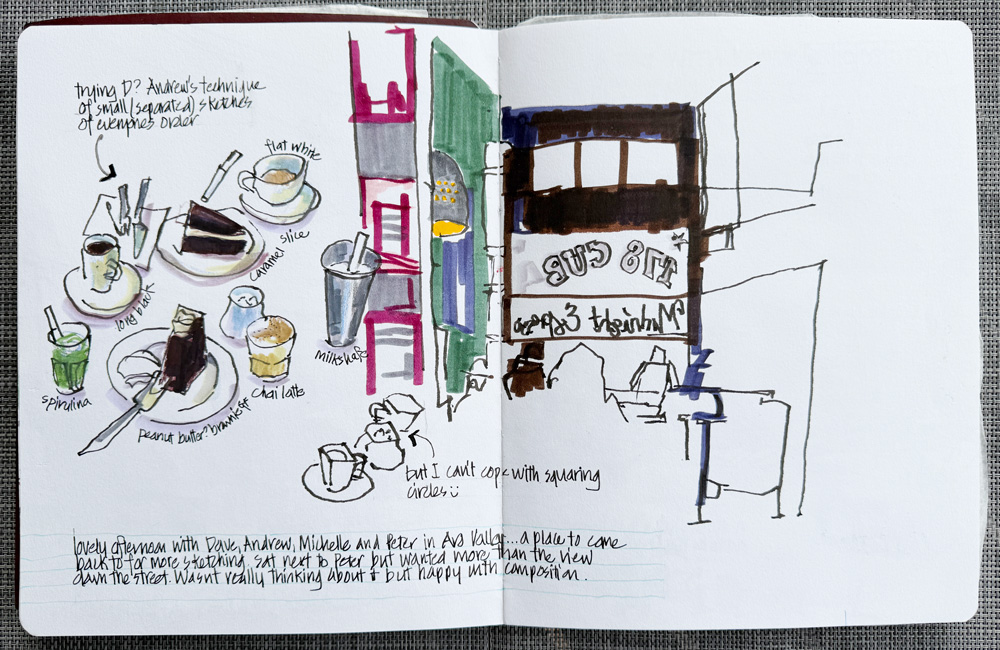 trying D? Andrew's technique
of small (separated) sketches
of everyones order
flat white
caramel slice
long black
milkshake
spirulina
chai latte
peanut butter? brownie
but I can't cope with squaring
circles
lovely afternoon with Dave, Andrew, Michelle and Peter in Ara Valley... a place to come
back to for more sketching. sat next to Peter but wanted more than the view
down the street. Wasnt really thinking about it but happy with composition.